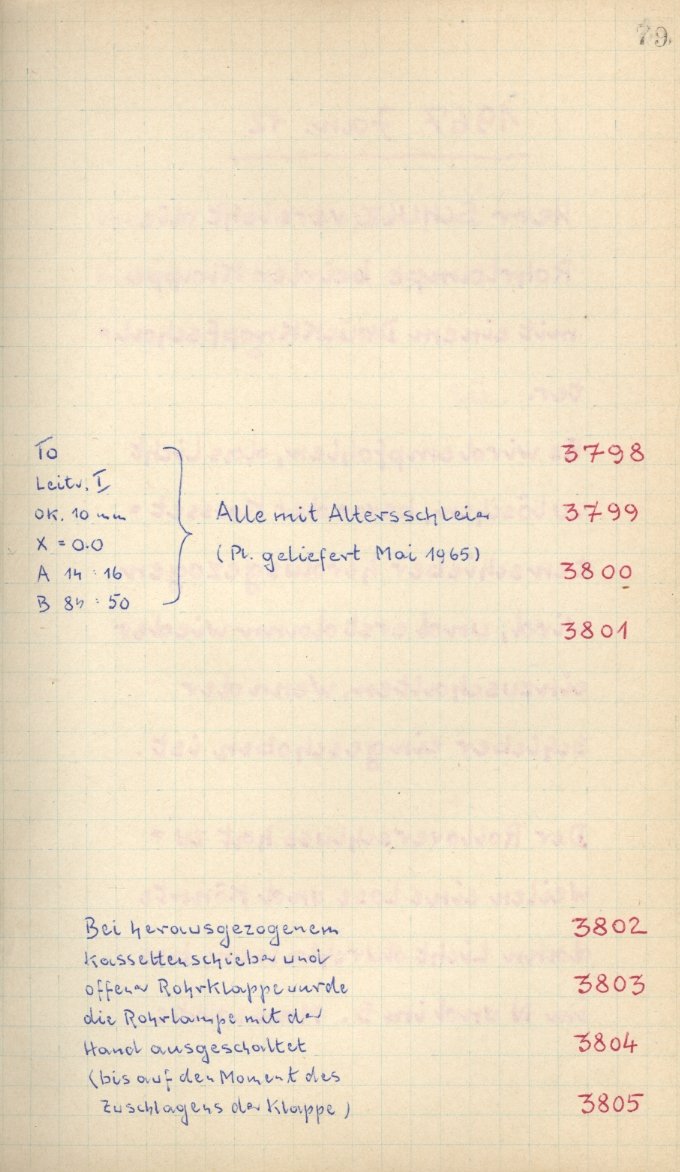 79
To
Leitr. I
Ok. 10 mm
X = 0.0
A 14 : 16
B 84 : 50
Alle mit Altersschleier
(Pl. geliefert Mai 1965)
3798
3799
3800
3801
Bei herausgezogenem
Kassettenschieber und
offener Rohrklappe wurde
die Rohrlampe mit der
Hand ausgeschaltet
(bis auf den Moment des
Zuschlagens der Klappe)
3802
3803
3804
3805